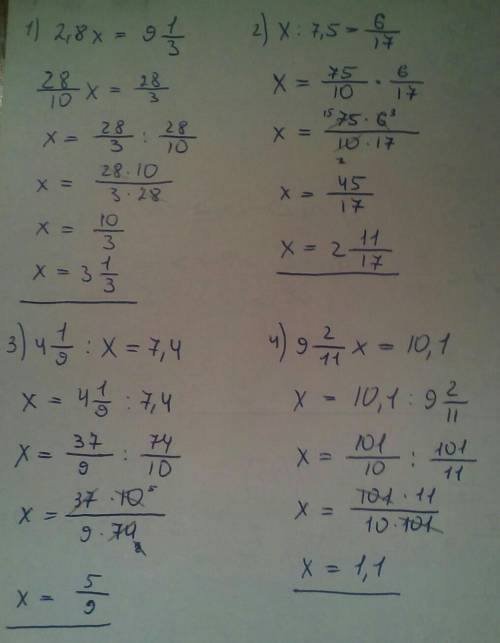 1) 2,8x = 9 1/3
28/10 x = 28/3
x = 28/3 : 28/10
x = 28·10/3·28
x = 10/3
x = 3 1/3
2) x : 7,5 = 6/17
x = 75/10 · 6/17
x = 15 75·6 3/10·17 2
x = 45/17
x = 2 11/17
3) 4 1/9 : x = 7,4
x = 4 1/9 : 7,4
x = 37/9 : 74/10
x = 37·10 5/9·74 2
x = 5/9
4) 9 2/11 x = 10,1
x = 10,1 : 9 2/11
x = 101/10 : 101/11
x = 101·11/10·101
x = 1,1